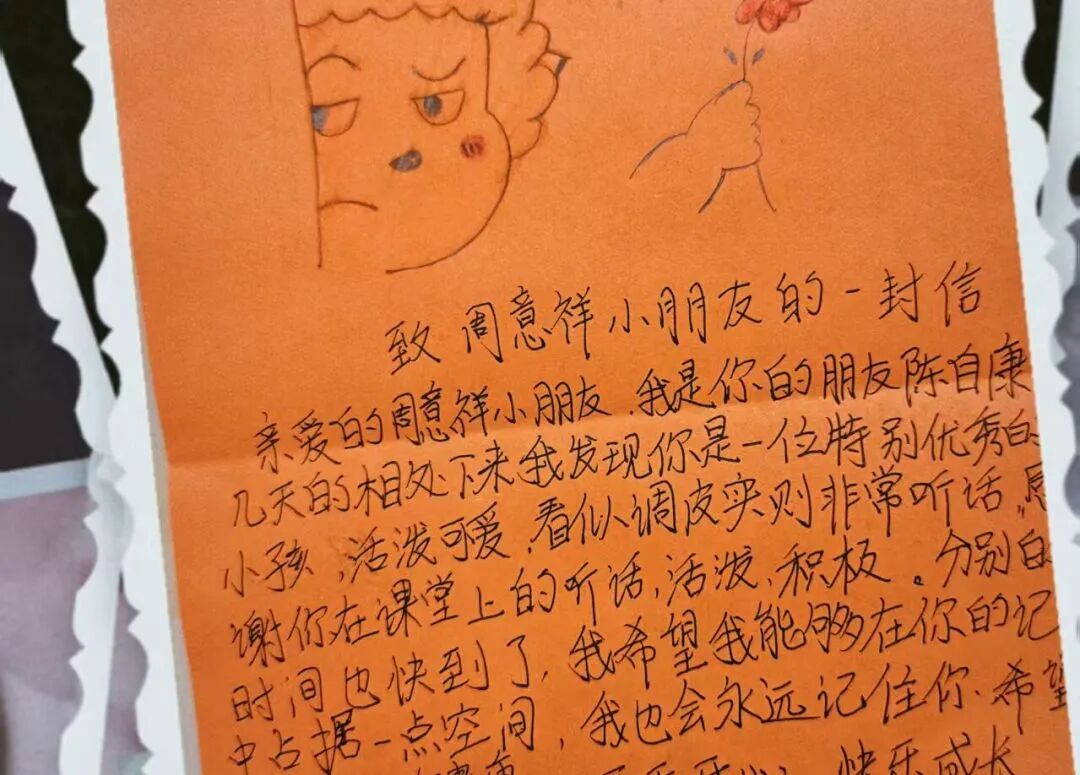 致周意祥小朋友的一封信
亲爱的周意祥小朋友,我是你的朋友陈自康
几天的相处下来我发现你是一位特别优秀的
小孩,活泼可爱,看似调皮实则非常听话。感
谢你在课堂上的听话,活泼、积极。分别的
时间也快到了,我希望我能够在你的记
中占据一点空间,我也会永远记住你.希望
开心,快乐成长